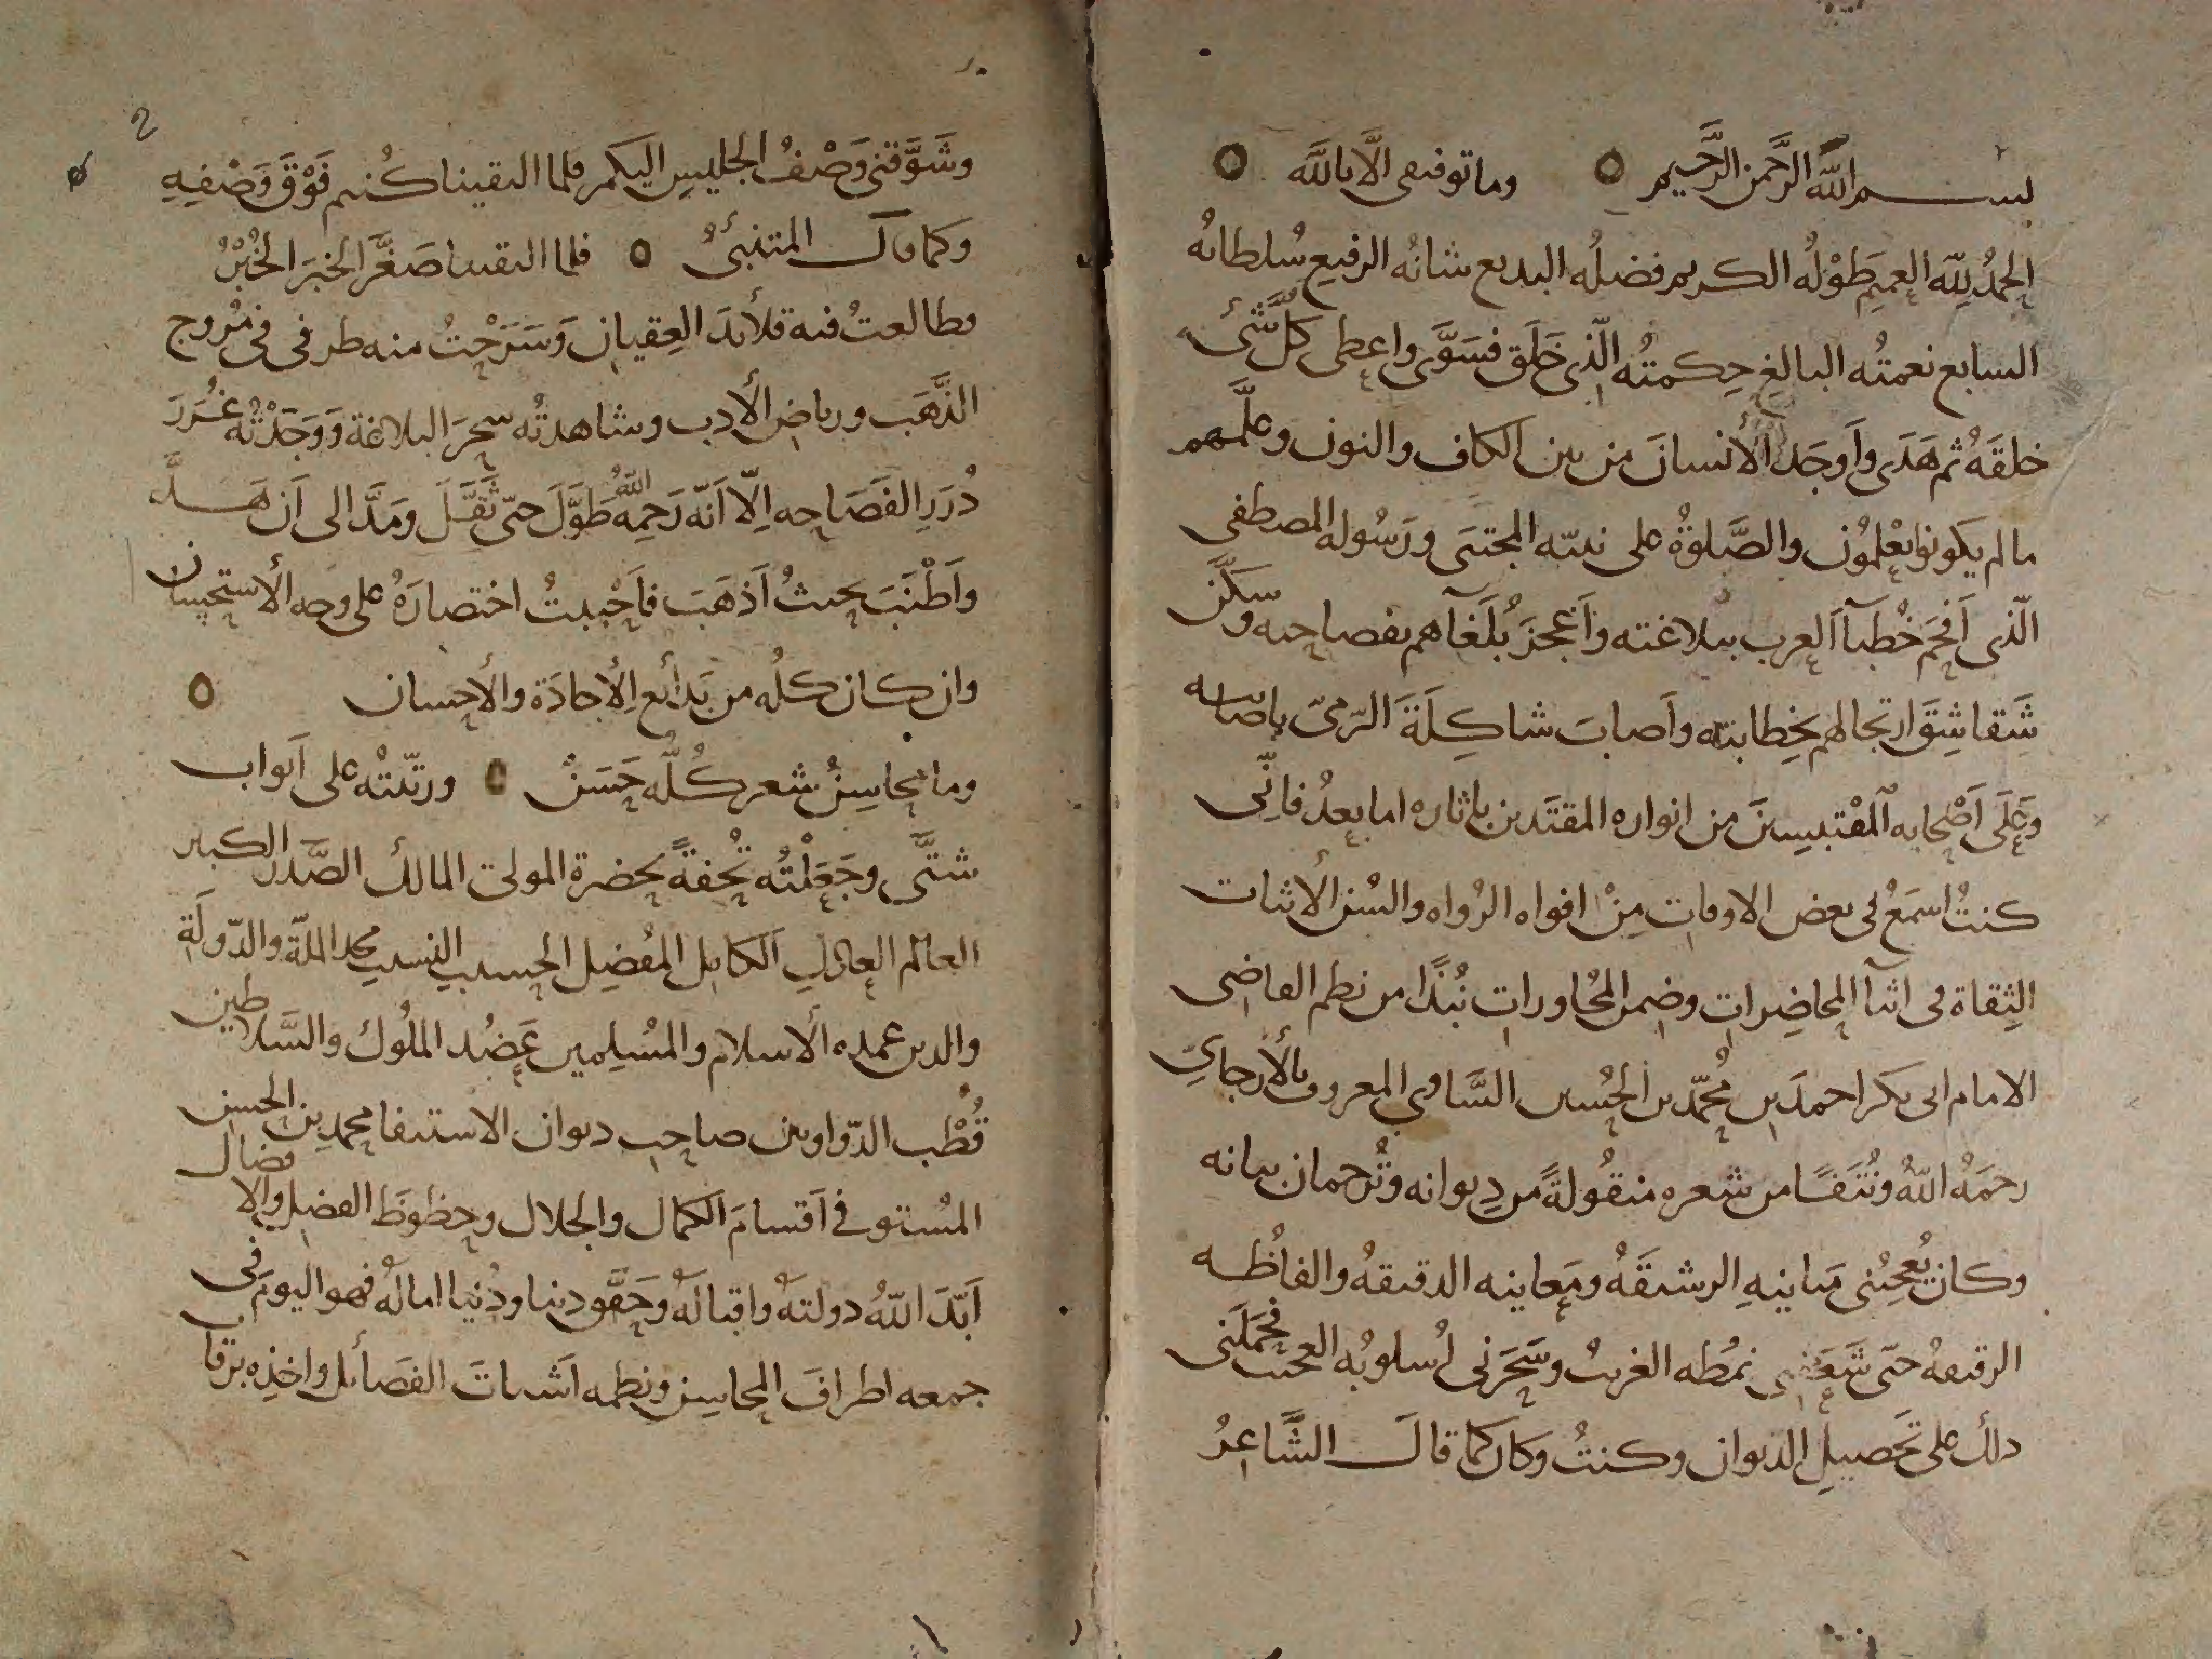 بسم الله الرحمن الرحيم وما توفيقى الّا بالله
الحمدُ لله العميم طَوْلُه الكريم فضلُه البديع شانُه الرفيع سُلطانُه
السابغ نعمتُه البالغ حِكمتُه الّذى خَلَق فسَوَّى واعطى كلّ شَّىءٍ
خلقَهُ ثم هَدَى وأوجَد الأنسانَ من بين الكاف والنون وعلَّمهم
ما لم يكونوا يعْلمُون والصَّلوةُ على نبيّه المجتبَى ورَسُوله المصطفى
الّذى اَفحَم خُطبآ العرب ببلاغته وأعْجزَ بُلَغآهم بفصاحته وسكَّن
شَقاشِقَ ارتجالهم بخِطابته وأصابَ شاكِلَةَ الرّمىّ باصابته
وعَلَى اَصْحابه المقْتبِسينَ من انواره المقتَدين باثاره اما بعدُ فانِّى
كنتُ اسمَعُ فى بعض الاوقات مِنْ افواه الرُواه والسُن الاثبات
الثِقاة فى اثنآ المحاضِرات وضمن المحُاورات نُبَذًا من نظم القاضى
الامام ابى بكر احمدَ بن مُحمّد بن الحُسين السَّاوى المعروف بالأرجانِىّ
رحمَهُ اللهُ ونُتَفًا من شعره منقُولةً من دِيوانه وتُرجمان بيانه
وكان يُعجِبُنى مَبانيهِ الرشيقَهُ ومَعانيه الدقيقهُ والفاظُه
الرقيقهُ حتّى شَعَفنى نمُطه الغريبُ وسَحَرنى اُسلوبُه العجيبُ فحمَلَنى
ذلك على تحَصيلِ الديوان وكنتُ وكان كما قالَ الشَّاعِرُ
وشَوَّقنى وَصْفُ الجليسِ اليكم فلما التقينا كُنتم فَوْقَ وَصْفِهِ
وكما قال المتنبئُ فلما التقينا صَغَّرَ الخبَرَ الخُبْرُ
فطالعتُ فيه قلائدَ العِقيان وَسَرَحْتُ منه طرفى فى مُروج
الذَّهَب ورياض الأدب وشاهدتُه سحرَ البلاغة وَوَجَدْتُه غُرَرَ
دُرَرِ الفَصَاحه اِلّا اَنّه رَحِمهُ اللهُ طَوَّلَ حتّى ثَقَّلَ ومَدَّ الى اَن هَدَّ
واَطْنَبَ بحيثُ اَذهَبَ فاَحْببتُ اختصارَهُ على وجه الأستحسان
وان كان كلُه من بَدأئع الأجادَة والأحسان
وما محاسِنُ شعر كُلُّه حَسَنٌ ورتّبتْه على اَبواب
شتَّى وجَعَلْتُه تُحفةً بحضرة المولى المالك الصَّدر الكبير
العالم العادل الكامل المُفضِل الحسيب النسيب مجد الملّة والدّولَة
والدين عمده الأسلام والمُسْلِمين عَضُد المُلوك والسَّلاطين
قُطْب الدّواوين صاحِب ديوان الاستيفا محمد بن الحسن
المُستوفى اَقسامَ الكمال والجلال وحظوظَ الفضل والافضال
اَبّدَ اللهُ دولتهُ واقبالَهُ وحَقَّق دينا ودُنيا امالَهُ فهو اليومَ فى
جمعه اطرافَ المحاسِن ونظمه اَشتاتَ الفضَائل واخذِه برقاب